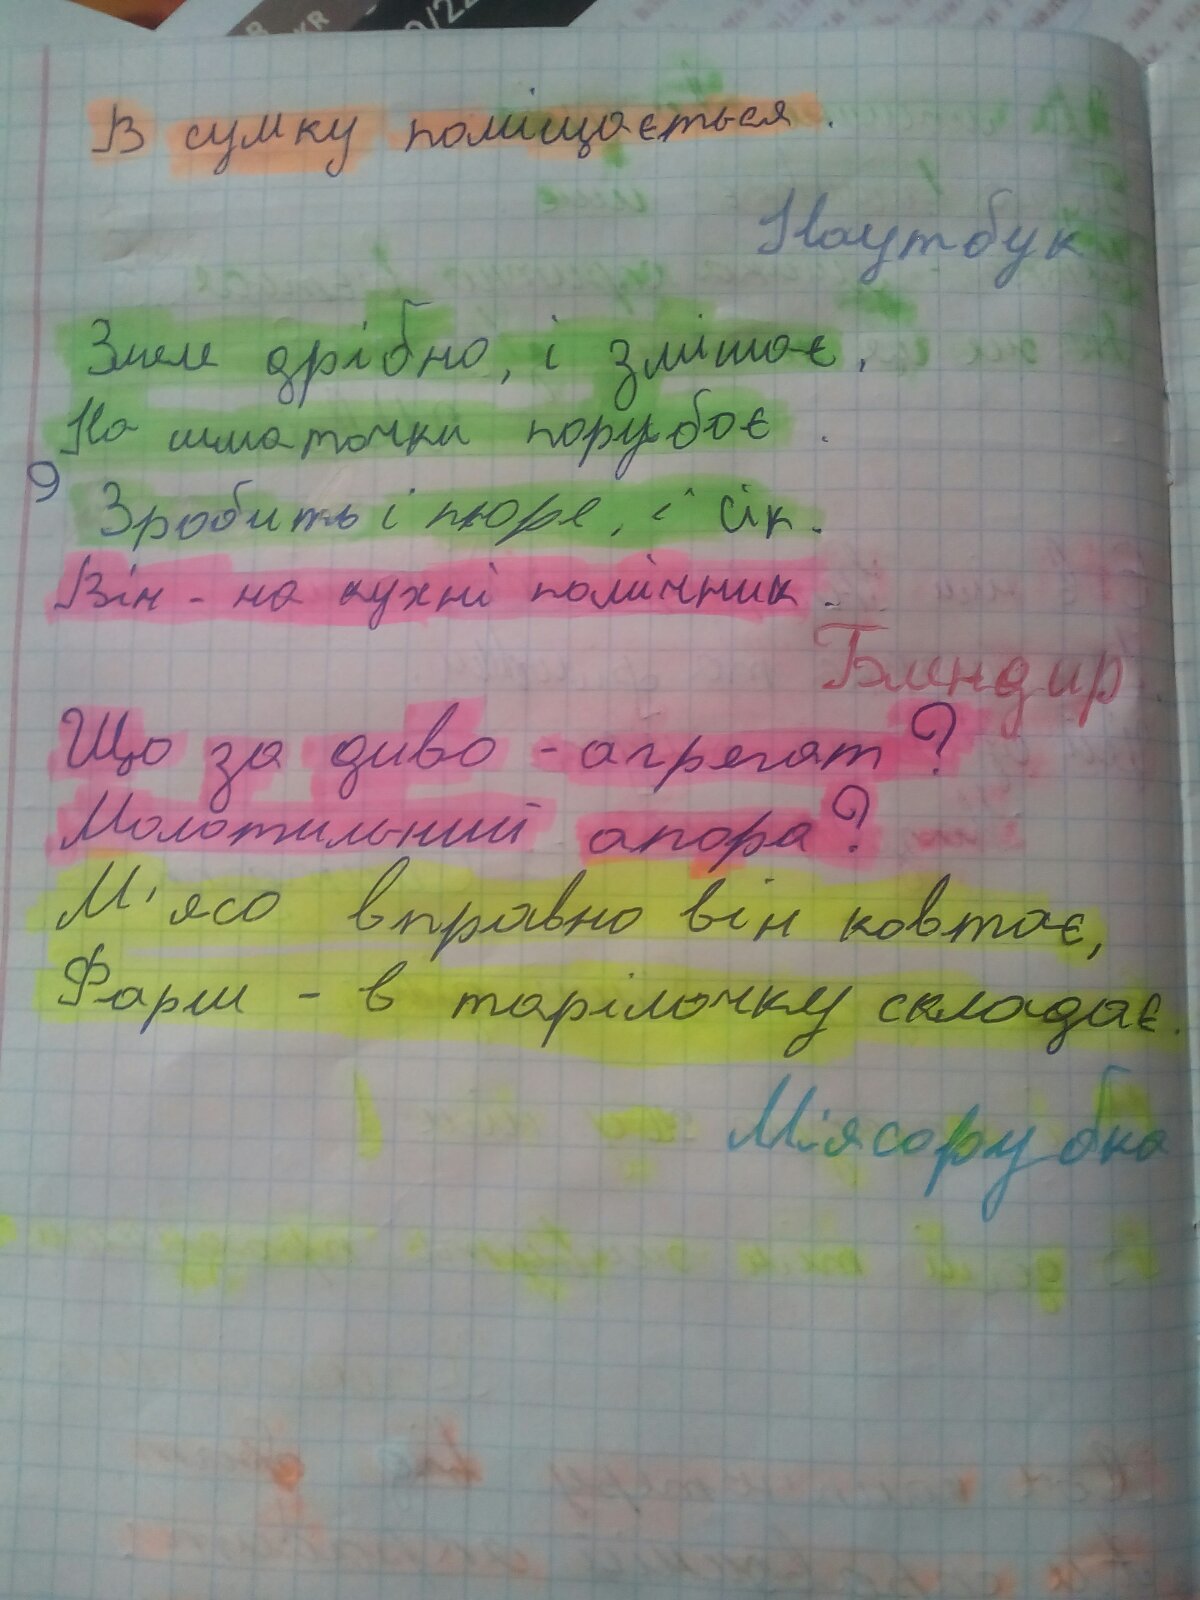 В сумку поміщається.
Ноутбук
Змеле дрібно, і змішає,
На шматочки порубає.
9
Зробить і пюре, і сік.
Він - на кухні помічник.
Блендир
Що за диво - агрегат?
Молотильний апора?
М'ясо вправно він ковтає,
Фарш - в тарілочку складає.
М'ясорубка